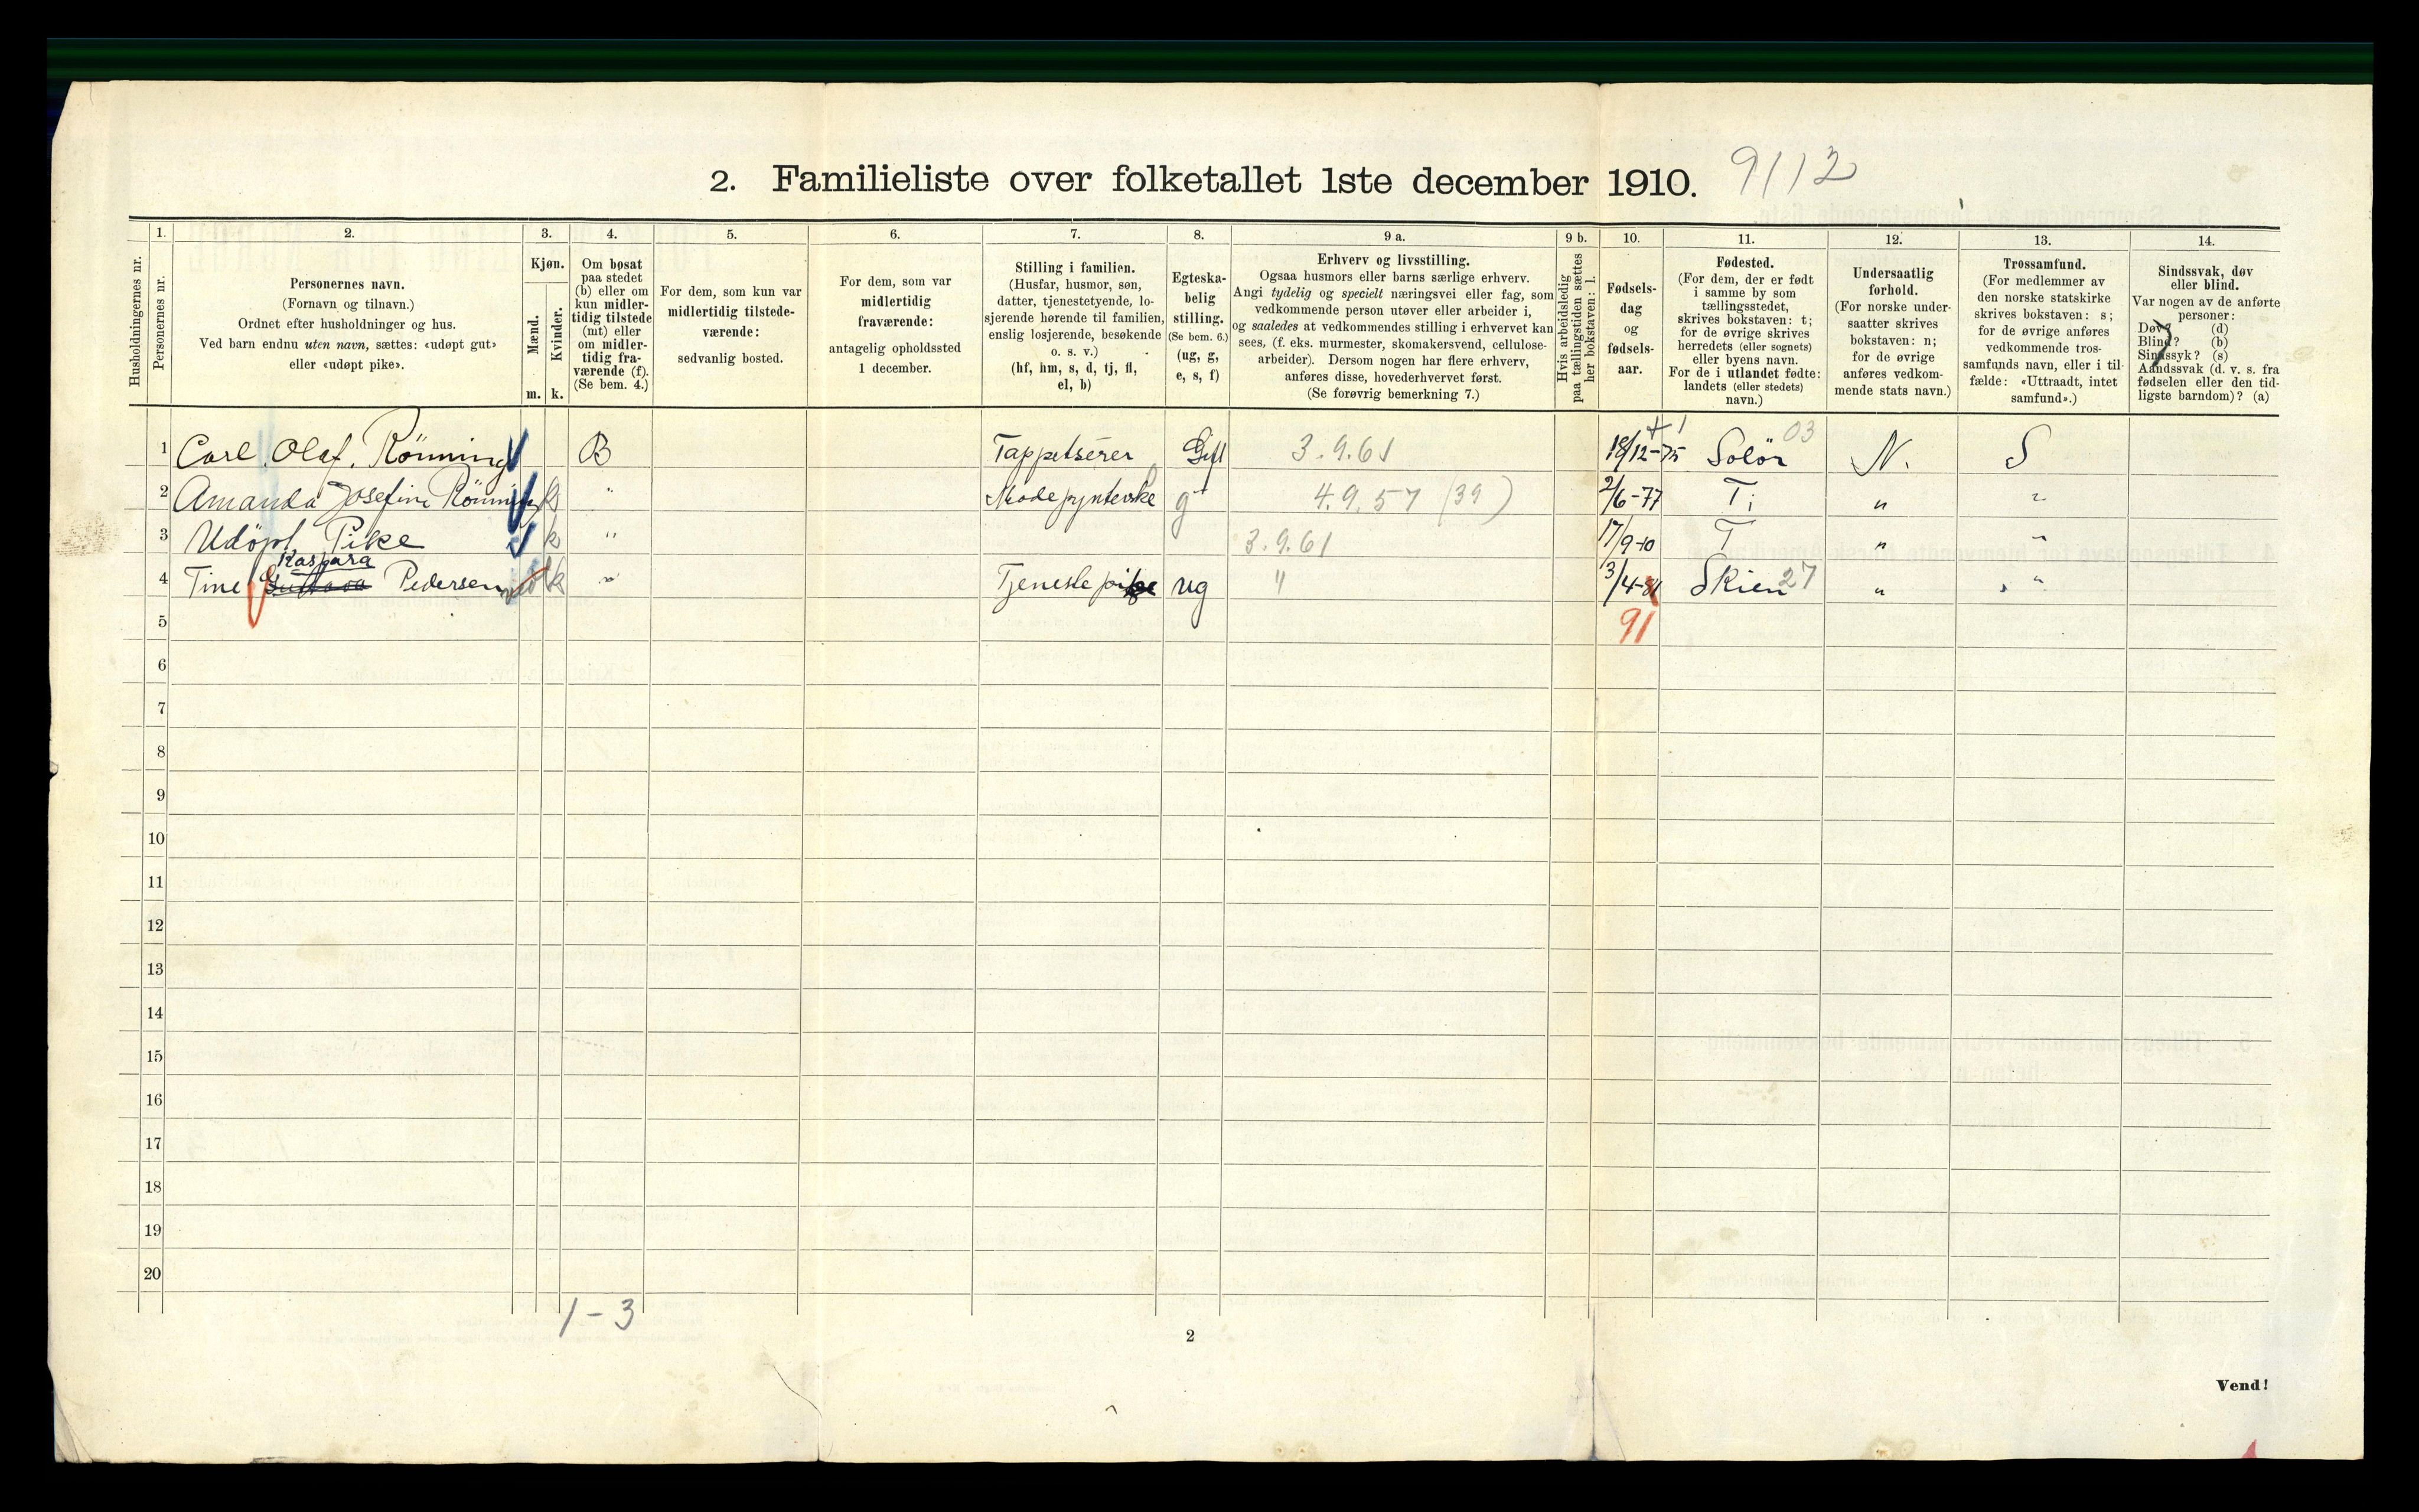 2. Familieliste over folketallet 1ste december 1910. 9112
Husholdningernes nr.
1.
Personernes nr.
2.
Personernes navn.
(Fornavn og tilnavn.)
Ordnet efter husholdninger og hus.
Ved barn endnu uten navn, sættes: «udøpt gut»
eller «udøpt pike».
3.
Kjøn.
Mænd.
Kvinder.
m. k.
4.
Om bosat
paa stedet
(b) eller om
kun midler-
tidig tilstede
(mt) eller
om midler-
tidig fra-
værende (f).
(Se bem. 4.)
5.
For dem, som kun var
midlertidig tilstede-
værende:
sedvanlig bosted.
6.
For dem, som var
midlertidig
fraværende:
antagelig opholdssted
1 december.
7.
Stilling i familien.
(Husfar, husmor, søn,
datter, tjenestetyende, lo-
sjerende hørende til familien,
enslig losjerende, besøkende
o. s. v.)
(hf, hm, s, d, tj, fl,
el, b)
8.
Egteska-
belig
stilling.
(Se bem. 6.)
(ug, g,
e, s, f)
9 a.
Erhverv og livsstilling.
Ogsaa husmors eller barns særlige erhverv.
Angi tydelig og specielt næringsvei eller fag, som
vedkommende person utøver eller arbeider i,
og saaledes at vedkommendes stilling i erhvervet kan
sees, (f. eks. murmester, skomakersvend, cellulose-
arbeider). Dersom nogen har flere erhverv,
anføres disse, hovederhvervet først.
(Se forøvrig bemerkning 7.)
9 b.
Hvis arbeidsledig
paa tællingstiden sættes
her bokstaven: l.
10.
Fødsels-
dag
og
fødsels-
aar.
11.
Fødested.
(For dem, der er født
i samme by som
tællingsstedet,
skrives bokstaven: t;
for de øvrige skrives
herredets (eller sognets)
eller byens navn.
For de i utlandet fødte:
landets (eller stedets)
navn.)
12.
Undersaatlig
forhold.
(For norske under-
saatter skrives
bokstaven: n;
for de øvrige
anføres vedkom-
mende stats navn.)
13.
Trossamfund.
(For medlemmer av
den norske statskirke
skrives bokstaven: s;
for de øvrige anføres
vedkommende tros-
samfunds navn, eller i til-
fælde: «Uttraadt, intet
samfund».)
14.
Sindssvak, døv
eller blind.
Var nogen av de anførte
personer:
Døv? (d)
Blind? (b)
Sindssyk? (s)
Aandssvak (d. v. s. fra
fødselen eller den tid-
ligste barndom)? (a)
1 Carl Olaf. Rönning B Tappetserer Gift 3.9.61 18/12-75 +1 Solör 03 N. S
2 Amanda Josefine Rönning k " Modepynterske g 4.9.57 (39) 2/6-77 T. " "
3 Udöpt Pike k " 3.9.61 17/9-10 T " "
Kaspara
4 Tine Pedersen k " Tjenestepike ug " 3/4-81 Skien 27 " "
5 91
6
7
8
9
10
11
12
13
14
15
16
17
18
19
20
1-3
2
Vend!